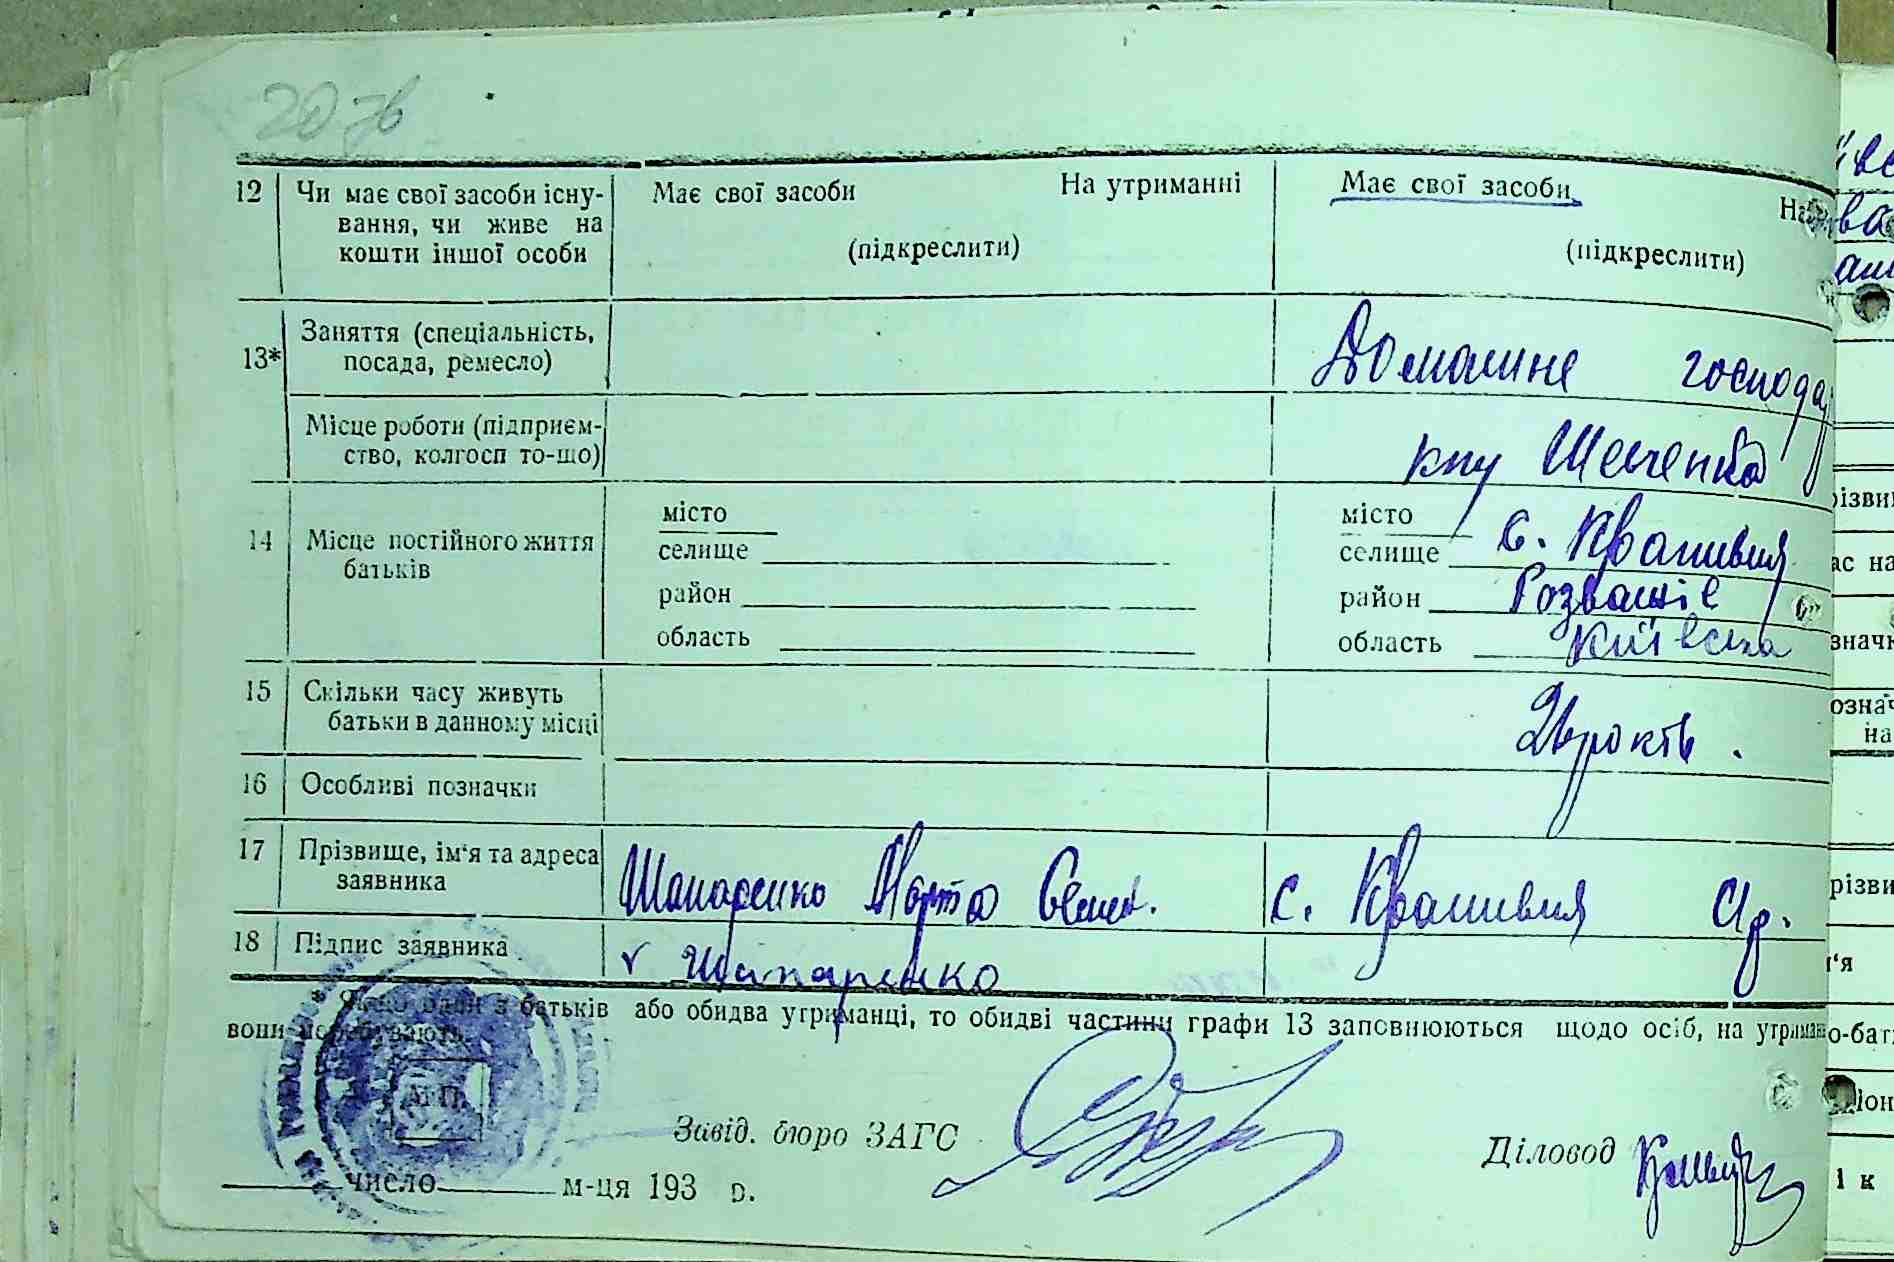 20 зв
12 Чи має свої засоби існу- Має свої засоби На утриманні Має свої засоби На
вання, чи живе на
кошти іншої особи (підкреслити) (підкреслити)
13* Заняття (спеціальність, Домашне господар
посада, ремесло)
Місце роботи (підприєм- Шевченко
ство, колгосп то-що)
14 Місце постійного життя місто місто
батьків селище селище с. Кращивия
район район Розважів
область область Київська
15 Скільки часу живуть
батьки в данному місці
16 Особливі позначки
17 Прізвище, ім'я та адреса Шапаренко Марта Семен. с.
заявника
18 Підпис заявника v Шапаренко
* Якщо один з батьків або обидва утриманці, то обидві частини графи 13 заповнюються щодо осіб, на утриман
вони перебувають.
М. П.
Завід. бюро ЗАГС Діловод
число м-ця 193 р.